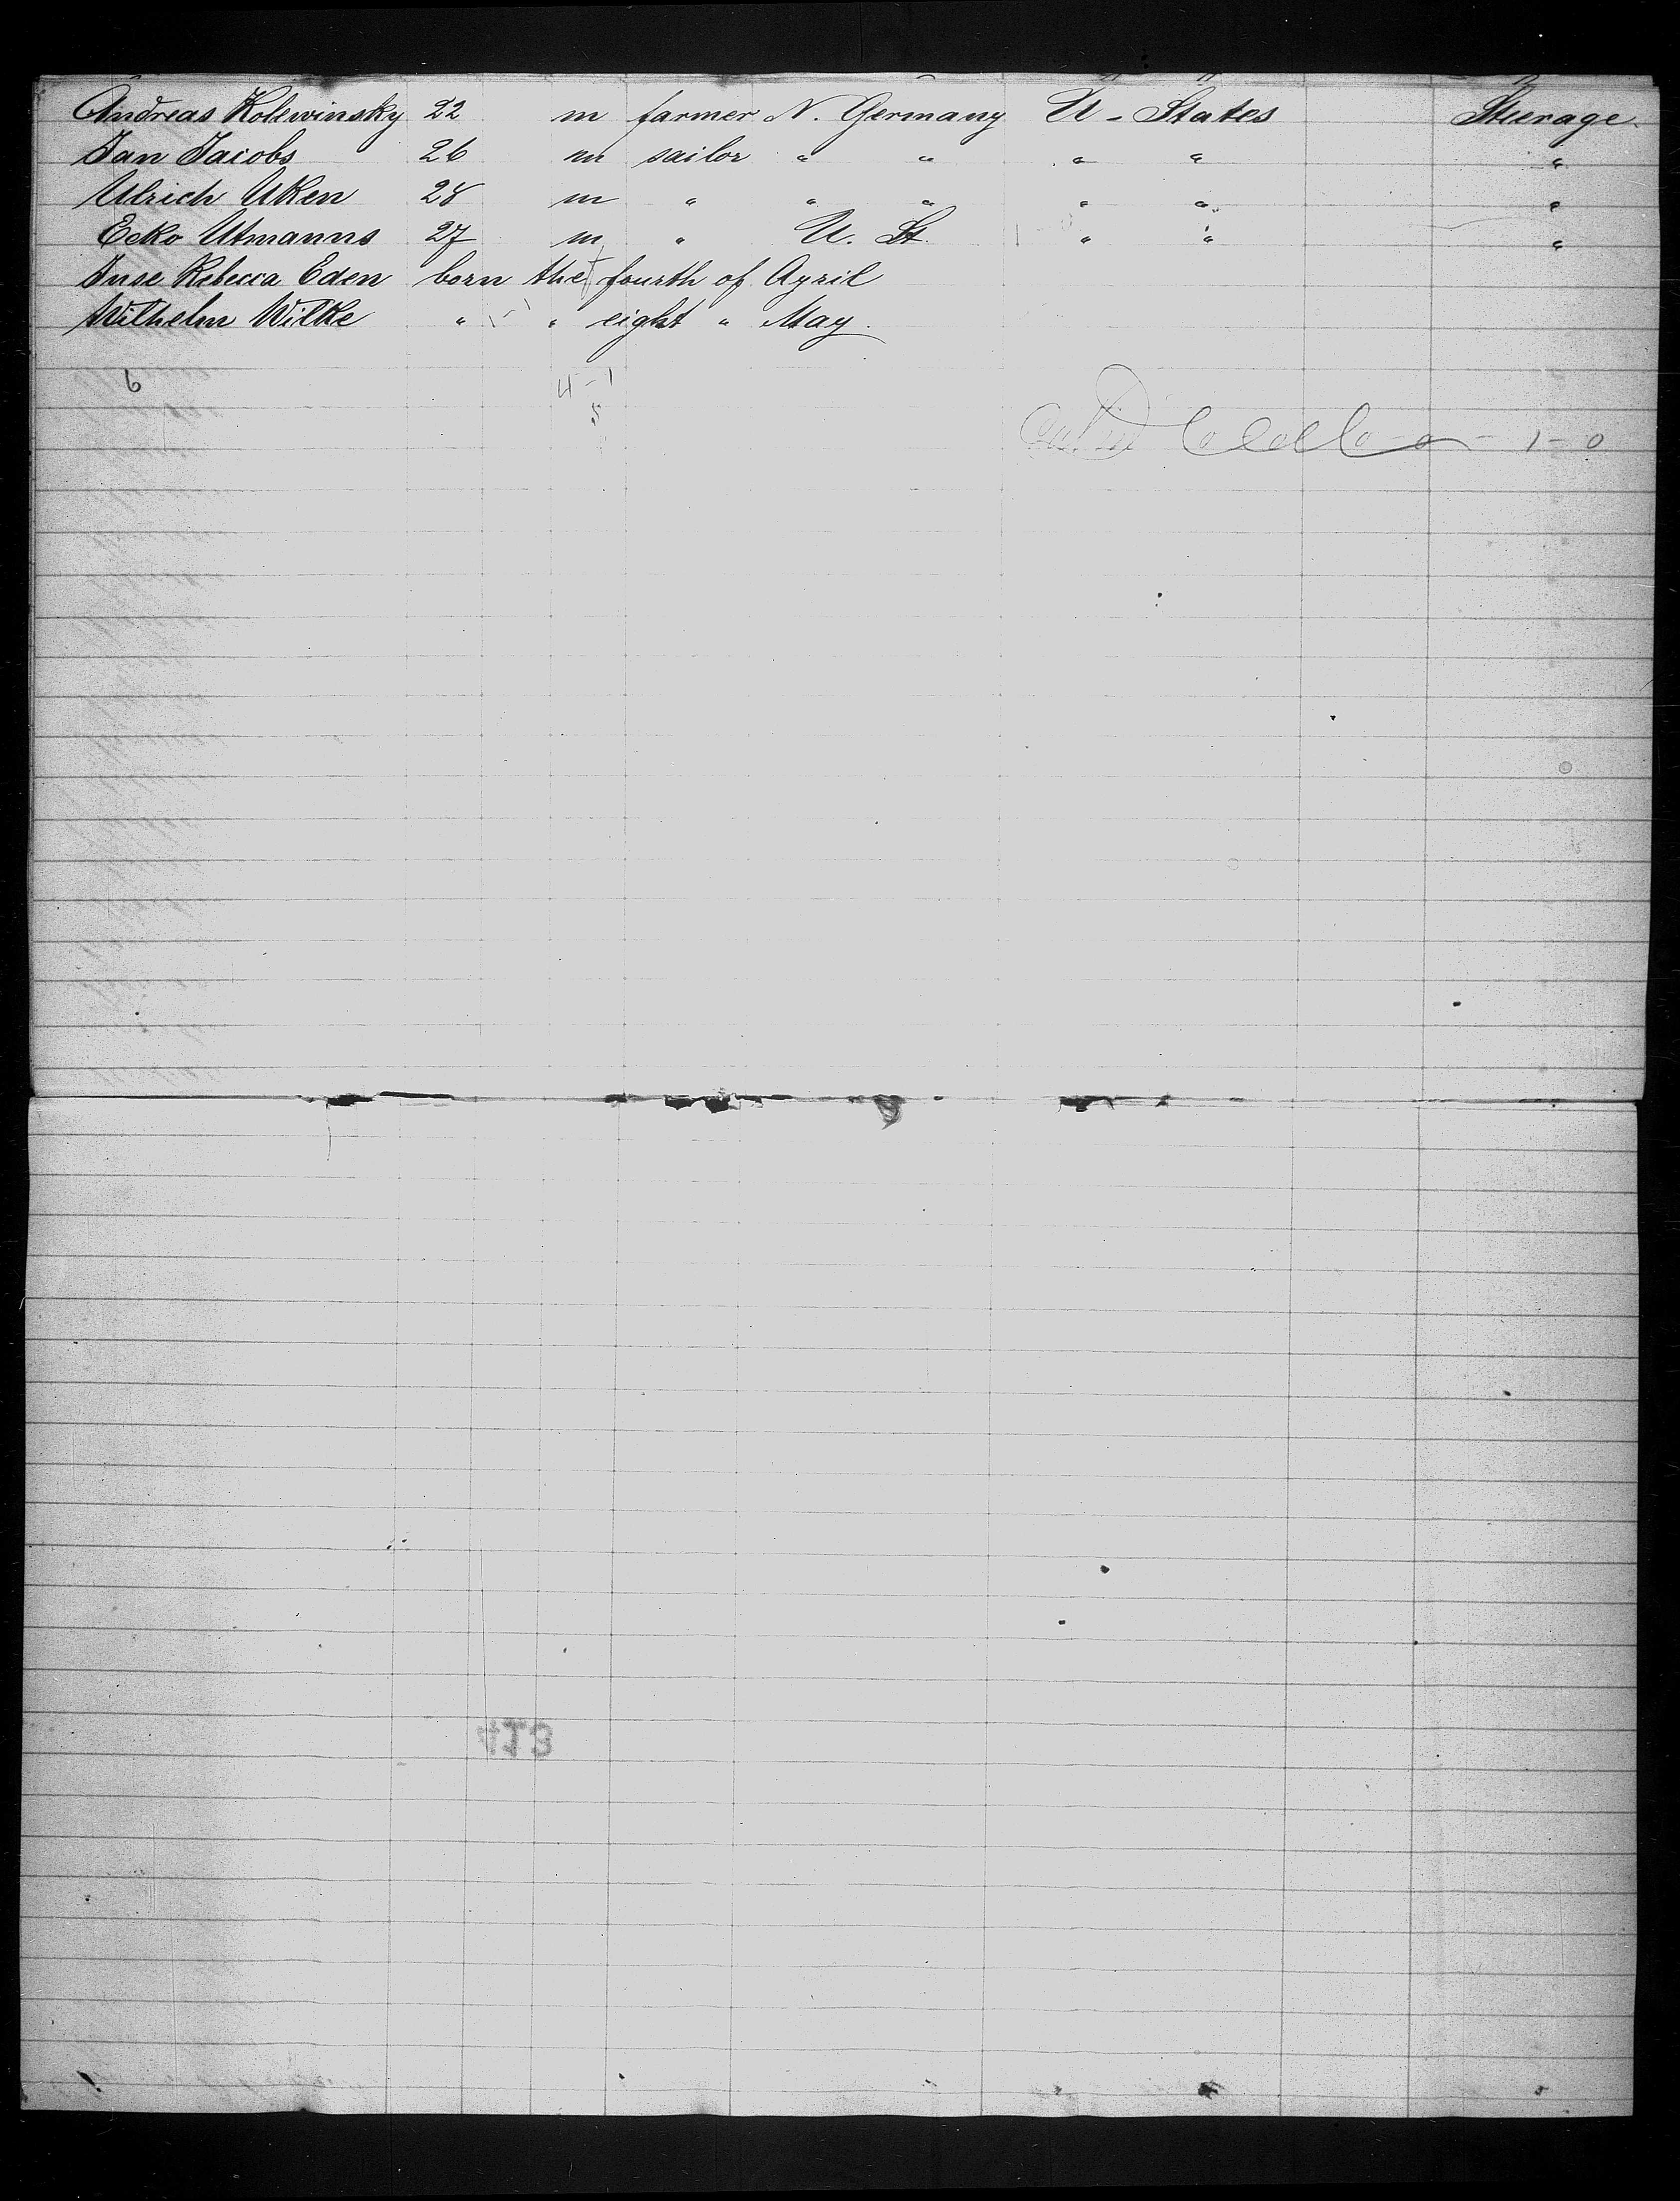 Andreas Kolewinsky 22 m farmer N. Germany U - States Steerage.
Jan Jacobs 26 m sailor " " " " "
Ulrich Uken 28 m " " " " " "
Ecko Utmanns 27 m " U. St. " " "
Inse Rebecca Eden born the fourth of April
Wilhelm Wilke " " eight " May.
6 4-1
5
1-0
413